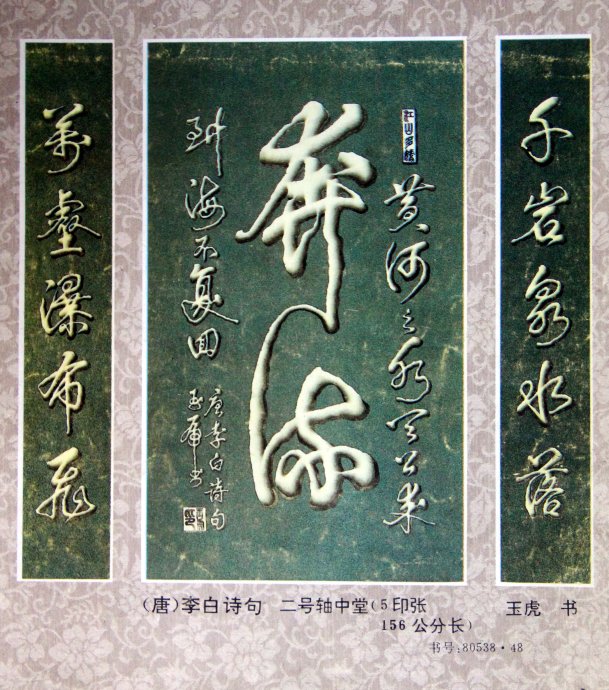 千岩泉水落
江山多
黄河之水天上来
奔流
到海不复回
唐李白诗句
玉虎书
萬壑瀑布飛
(唐)李白诗句 二号轴中堂(5印张
156公分长)
玉虎 书
书号:80538·48